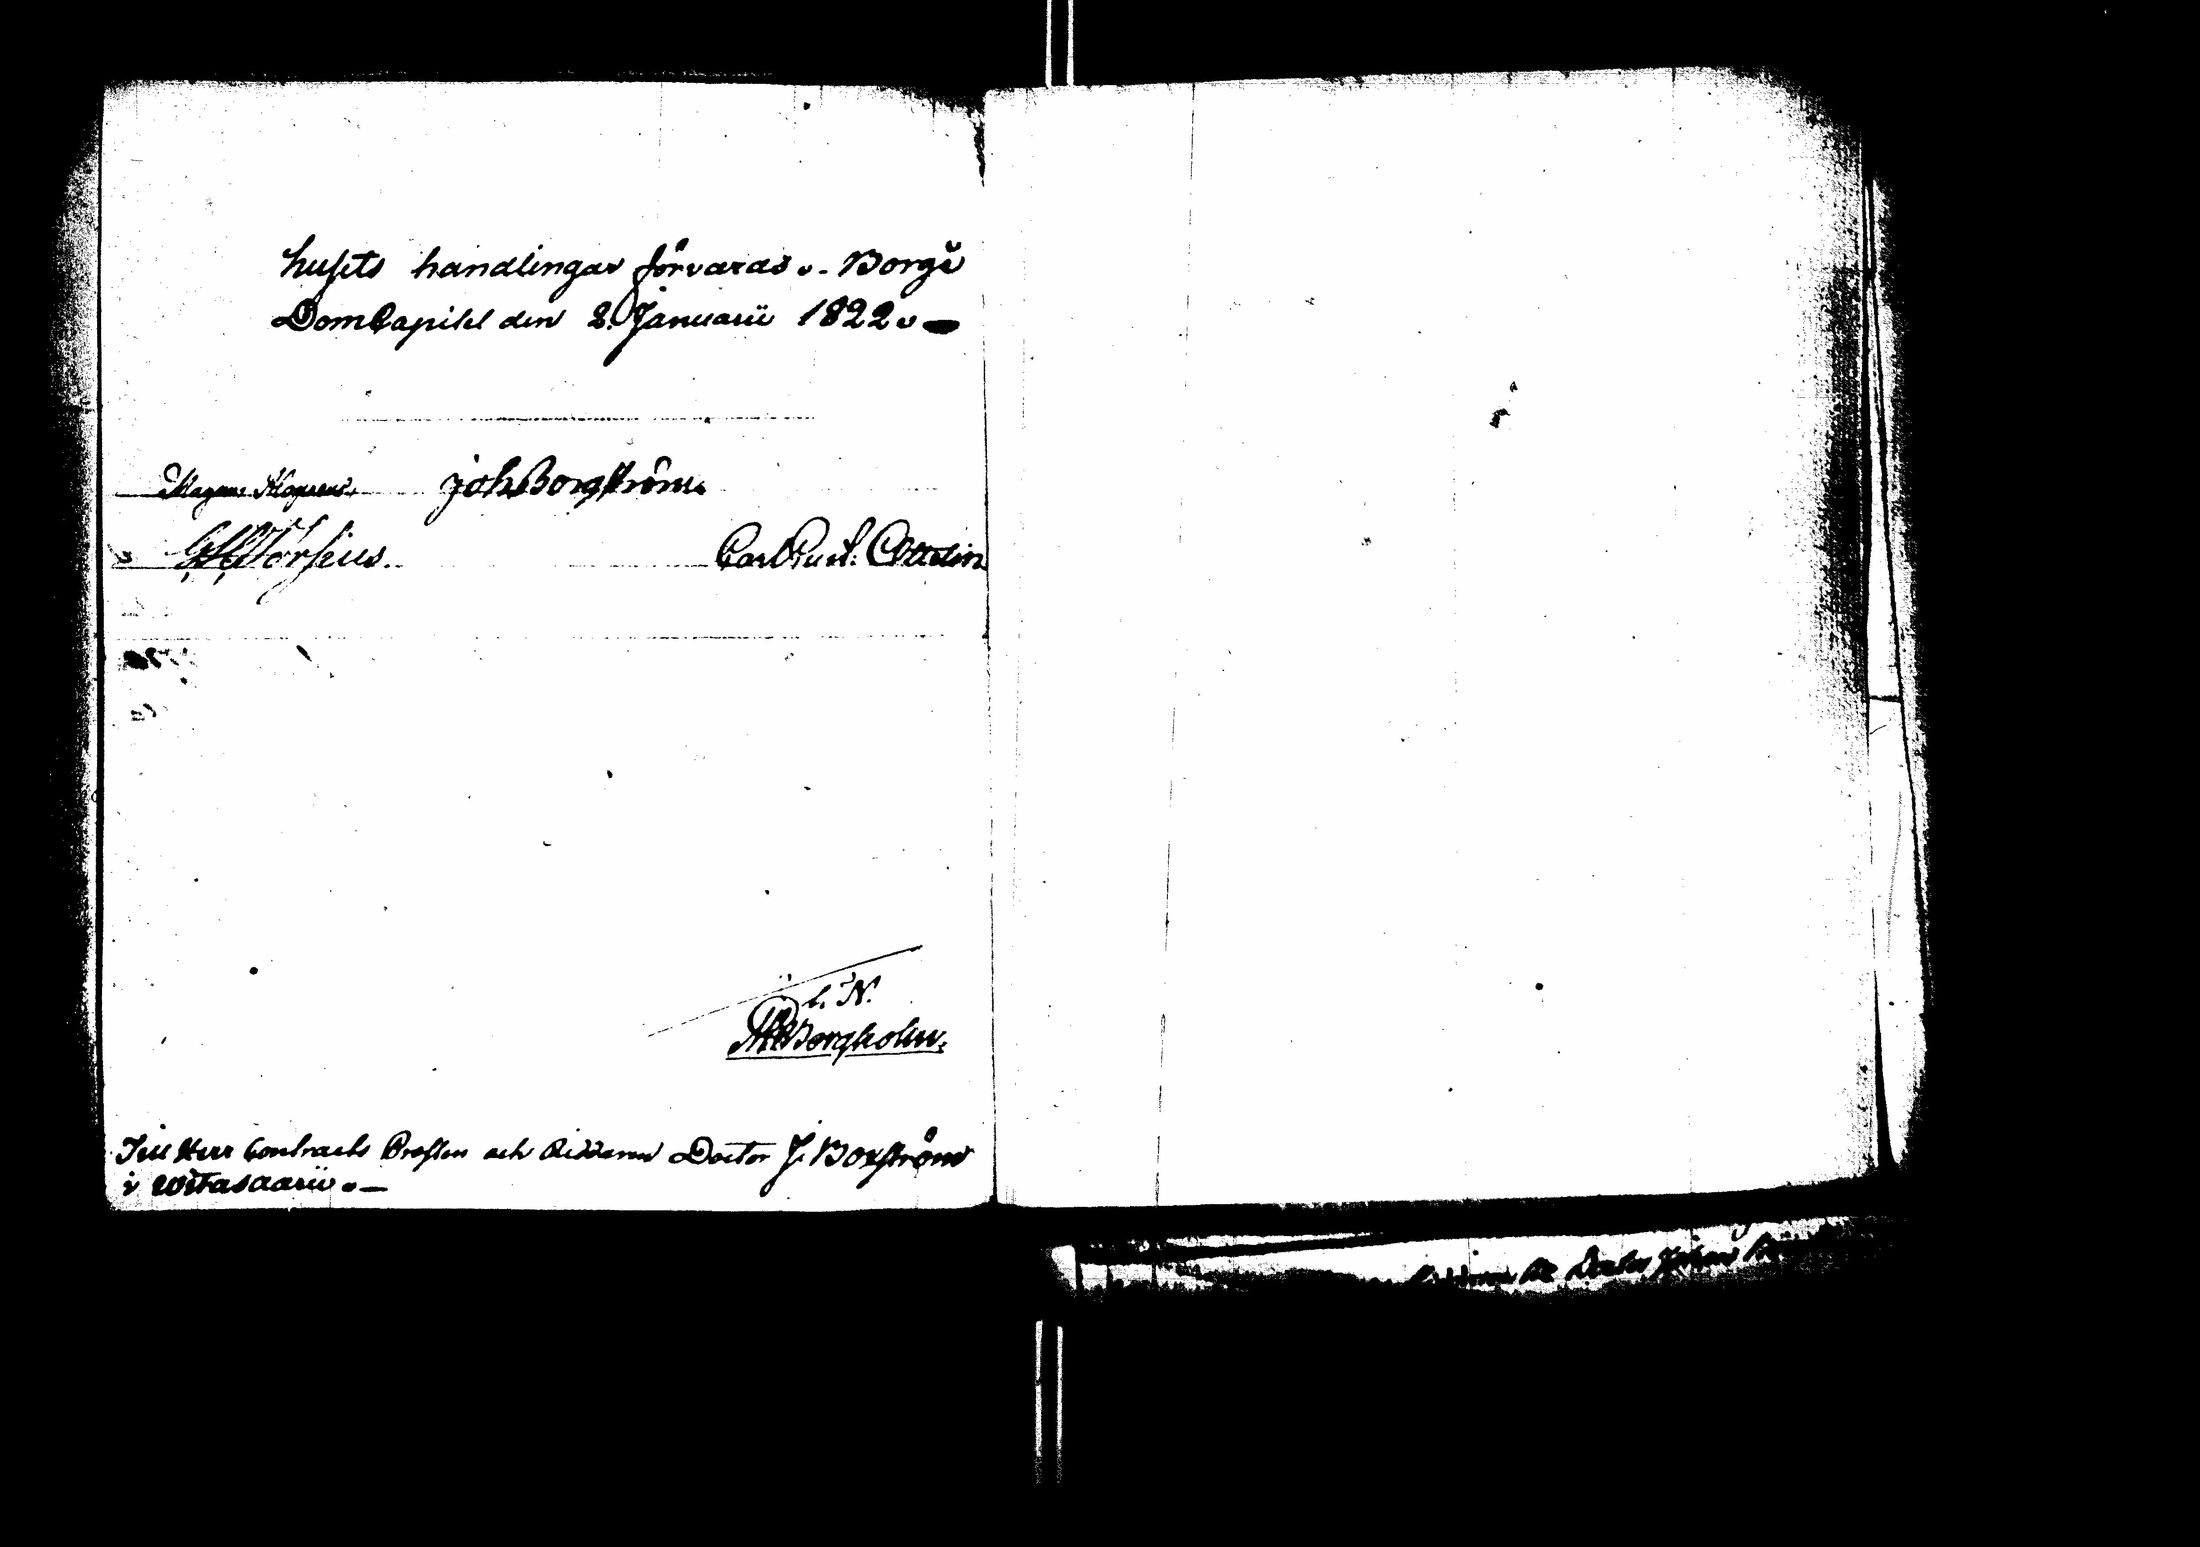 husets handlingar förvaras. Borgå
DomCapitel den 2. Januarii 1822.
Magnus Alopæus. Joh Borgström.
Carl Gust: Ottelin
l. N.
Borgholm.
Till Herr Contracts Prosten och Riddaren Doctor J. Boxström
i Witasaari.
Doctor Johan